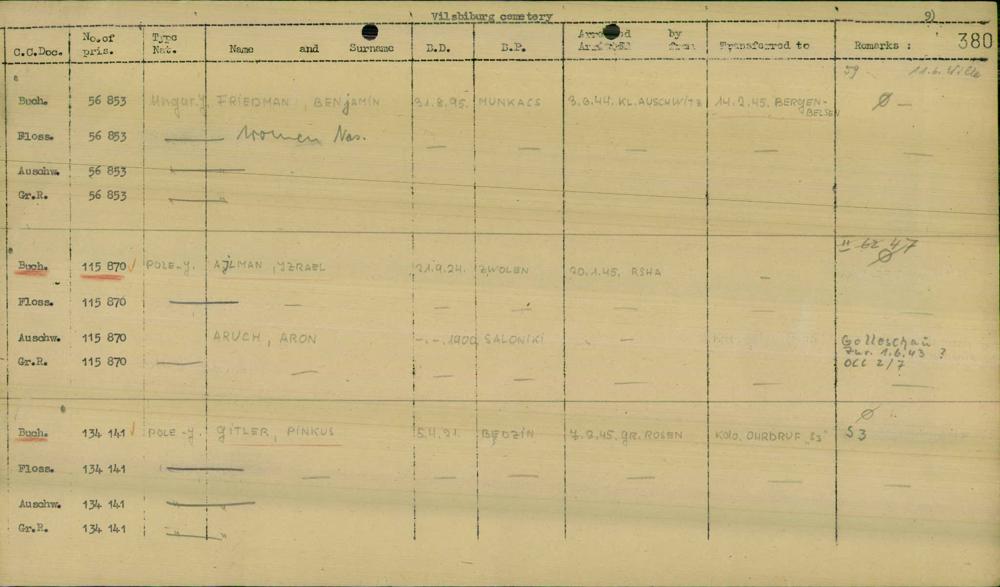 Vilsbiburg cemetery 9)
C.C.Doc. No.of pris. Type Nat. Name and Surname B.D. B.P. by from Transferred to Remarks : 380
59
Buch. 56 853 Ungar.J. FRIEDMAN, BENJAMIN 31.8.95. MUNKACS 3.6.44. KL.AUSCHWITZ 14.2.45. BERGEN-BELSEN Ø —
Floss. 56 853 — Women Nas. — — — — —
Auschw. 56 853 —
Gr.R. 56 853 — "
" 62 47
Ø
Buch. 115 870 ✓ POLE-J. AJLMAN, YZRAEL 21.9.24. ZWOLEN 20.1.45. RSHA —
Floss. 115 870 — — — —
Auschw. 115 870 ARUCH, ARON -.-.1900 SALONIKI — Golleschau
Zur. 1.6.43 ?
Gr.R. 115 870 — — — — — — — OCC 2/7
Ø
Buch. 134 141 ✓ POLE-J. GITLER, PINKUS 5.4.21. BĘDZIN 7.2.45. GR. ROSEN KDO. OHRDRUF "S3" S3
Floss. 134 141 — — — — — — —
Auschw. 134 141 — " —
Gr.R. 134 141 — " — "